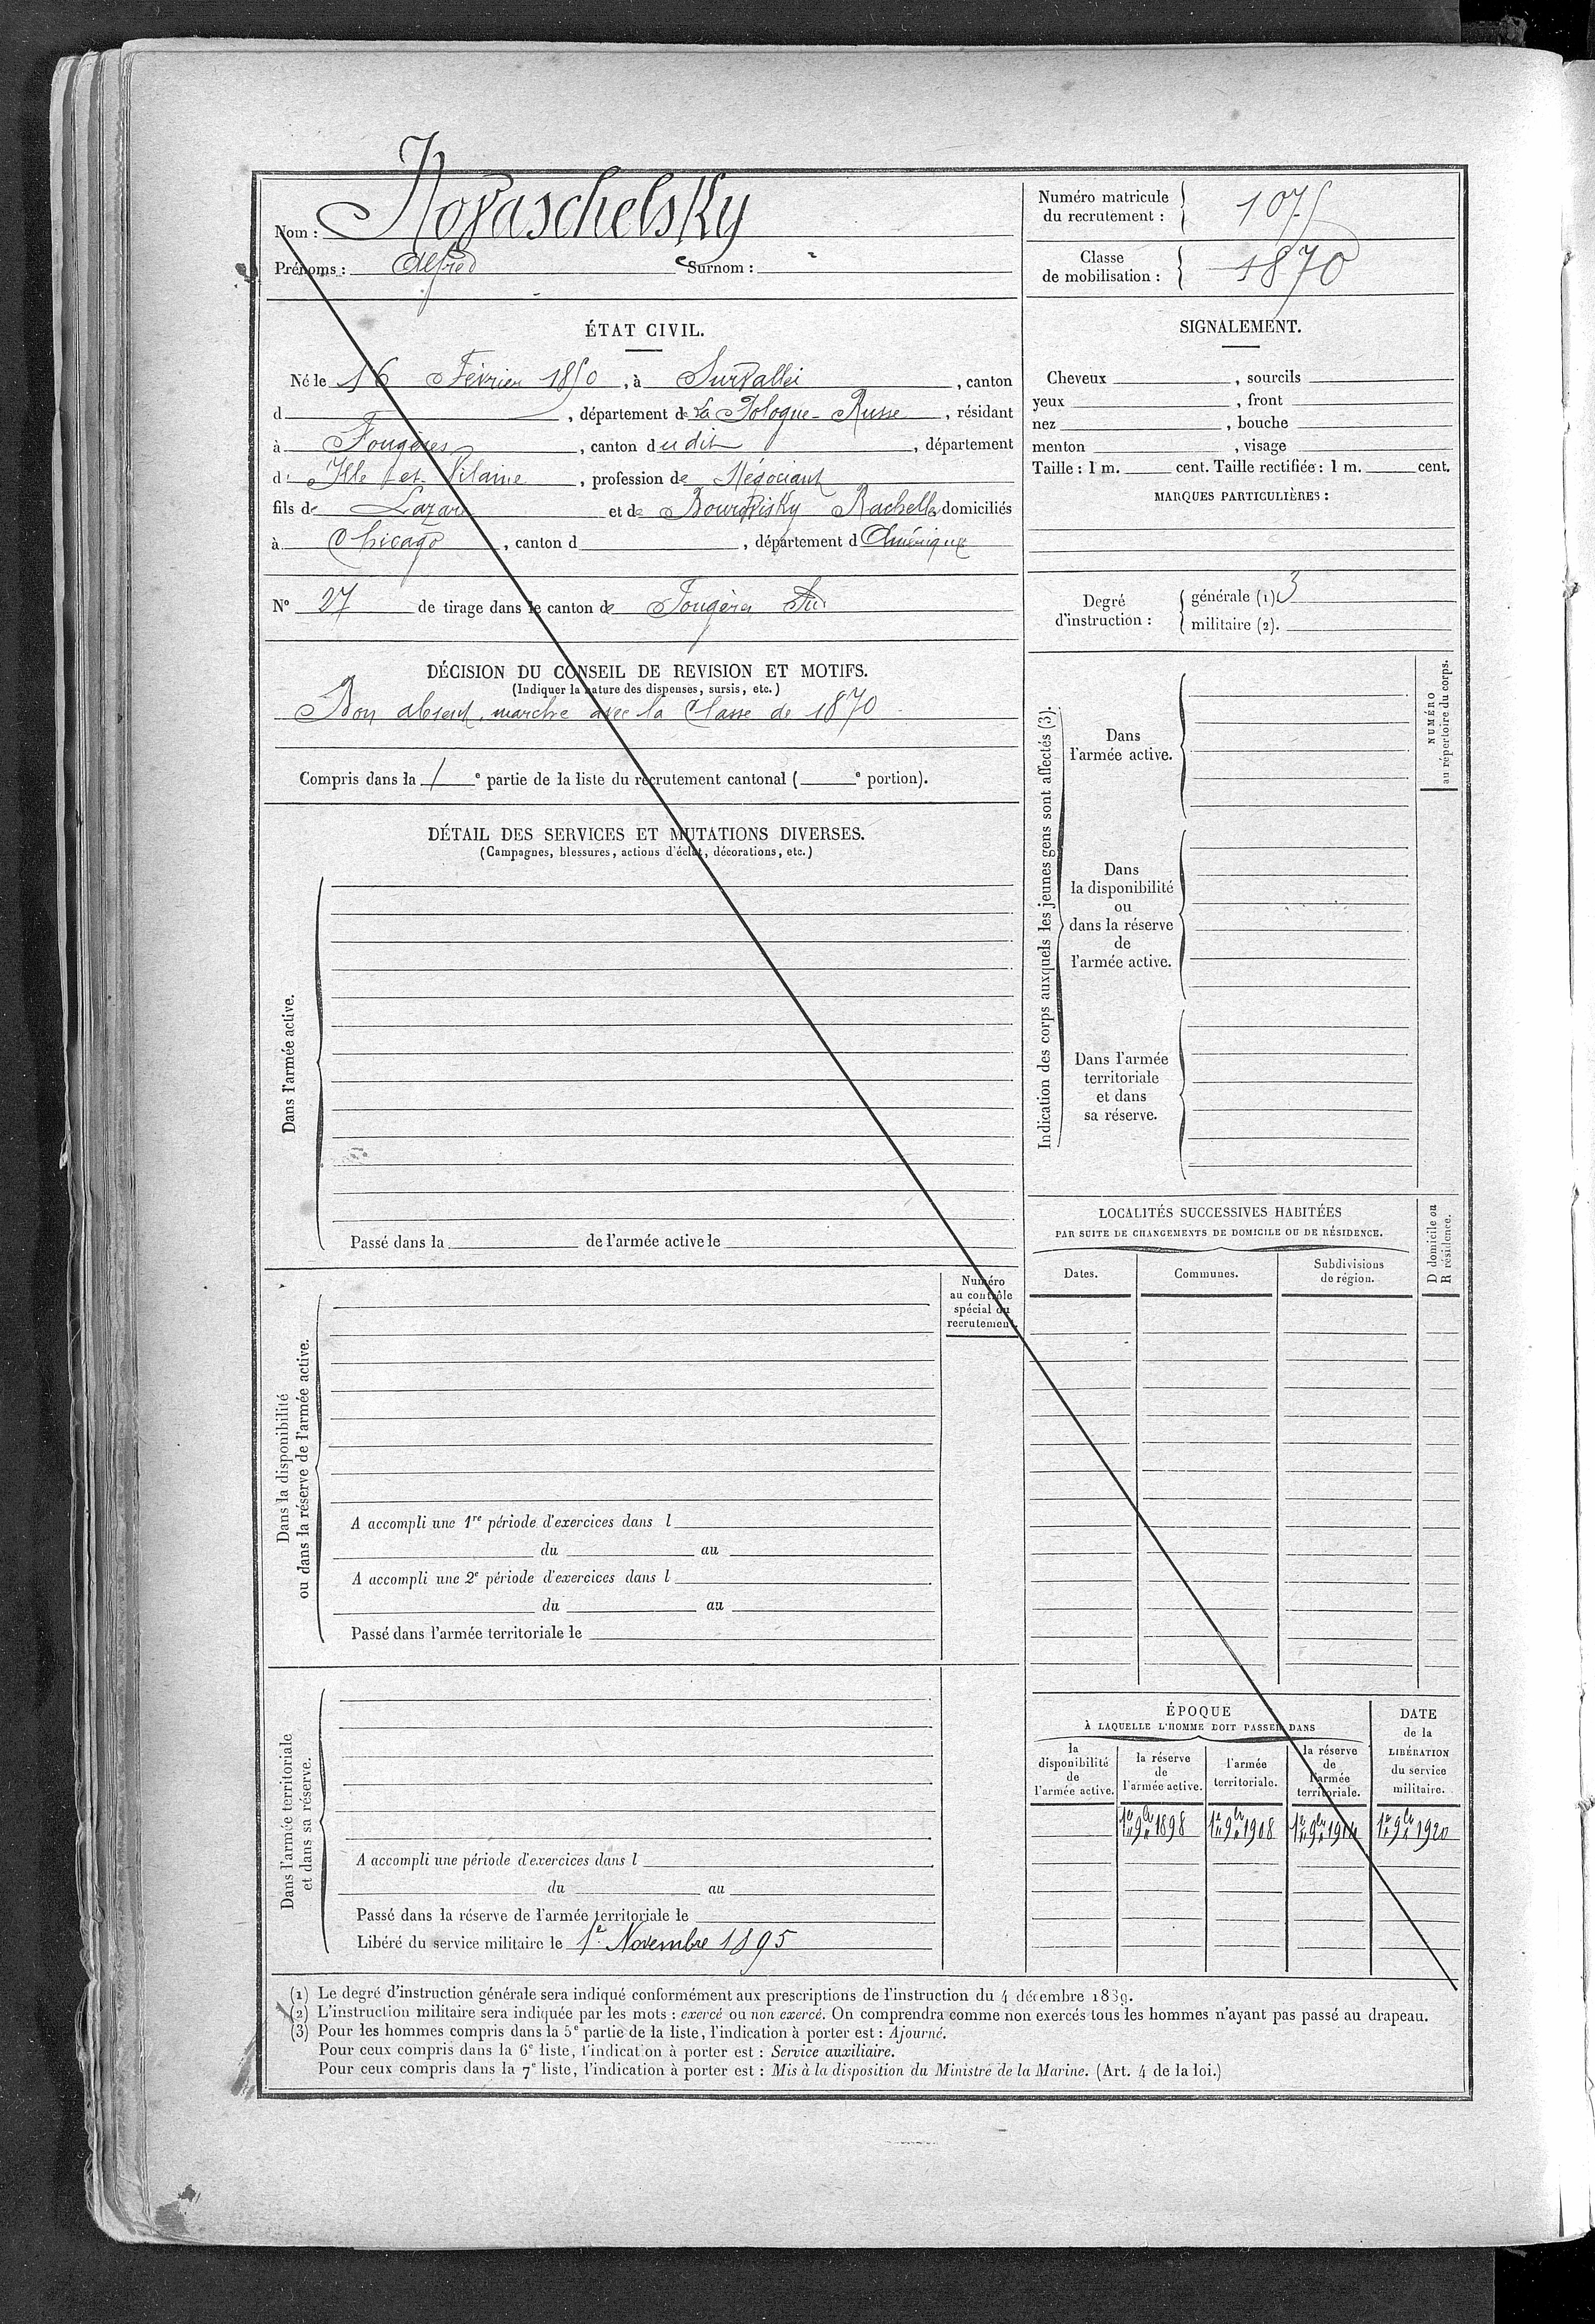 Nom : Novaschelsky
Prénoms : Alfred Surnom :
Numéro matricule du recrutement : 1075
Classe de mobilisation : 1870
ÉTAT CIVIL.
Né le 16 Février 1850, à Survalléi, canton
d , département de La Pologne-Russe, résidant
à Fougères, canton dudit, département
d'Ille et Vilaine, profession de Négociant
fils de Lazare et de Rachelle domiciliés
à Chicago, canton d , département d Amérique
N° 27 de tirage dans le canton de Fougères Sud
DÉCISION DU CONSEIL DE REVISION ET MOTIFS.
(Indiquer la nature des dispenses, sursis, etc.)
Bon absent, marche avec la Classe de 1870
Compris dans la 1e partie de la liste du recrutement cantonal ( e portion).
DÉTAIL DES SERVICES ET MUTATIONS DIVERSES.
(Campagnes, blessures, actions d'éclat, décorations, etc.)
Dans l'armée active.
Passé dans la de l'armée active le
Numéro
au contrôle
spécial du
recrutement.
Dans la disponibilité
ou dans la réserve de l'armée active.
A accompli une 1re période d'exercices dans l
du au
A accompli une 2e période d'exercices dans l
du au
Passé dans l'armée territoriale le
Dans l'armée territoriale
et dans sa réserve.
A accompli une période d'exercices dans l
du au
Passé dans la réserve de l'armée territoriale le
Libéré du service militaire le 1er Novembre 1895
SIGNALEMENT.
Cheveux , sourcils
yeux , front
nez , bouche
menton , visage
Taille : 1 m. cent. Taille rectifiée : 1 m. cent.
MARQUES PARTICULIÈRES :
Degré d'instruction :
générale (1). 3
militaire (2).
Indication des corps auxquels les jeunes gens sont affectés (3).
NUMÉRO
au répertoire du corps.
Dans
l'armée active.
Dans
la disponibilité
ou
dans la réserve
de
l'armée active.
Dans l'armée
territoriale
et dans
sa réserve.
LOCALITÉS SUCCESSIVES HABITÉES
PAR SUITE DE CHANGEMENTS DE DOMICILE OU DE RÉSIDENCE.
D domicile ou
R résidence.
Dates. Communes. Subdivisions de région.
ÉPOQUE
À LAQUELLE L'HOMME DOIT PASSER DANS
la disponibilité de l'armée active.
la réserve de l'armée active.
l'armée territoriale.
la réserve de l'armée territoriale.
DATE de la LIBÉRATION du service militaire.
1er 9bre 1898 1er 9bre 1908 1er 9bre 1914 1er 9bre 1920
(1) Le degré d'instruction générale sera indiqué conformément aux prescriptions de l'instruction du 4 décembre 1889.
(2) L'instruction militaire sera indiquée par les mots : exercé ou non exercé. On comprendra comme non exercés tous les hommes n'ayant pas passé au drapeau.
(3) Pour les hommes compris dans la 5e partie de la liste, l'indication à porter est : Ajourné.
Pour ceux compris dans la 6e liste, l'indication à porter est : Service auxiliaire.
Pour ceux compris dans la 7e liste, l'indication à porter est : Mis à la disposition du Ministre de la Marine. (Art. 4 de la loi.)